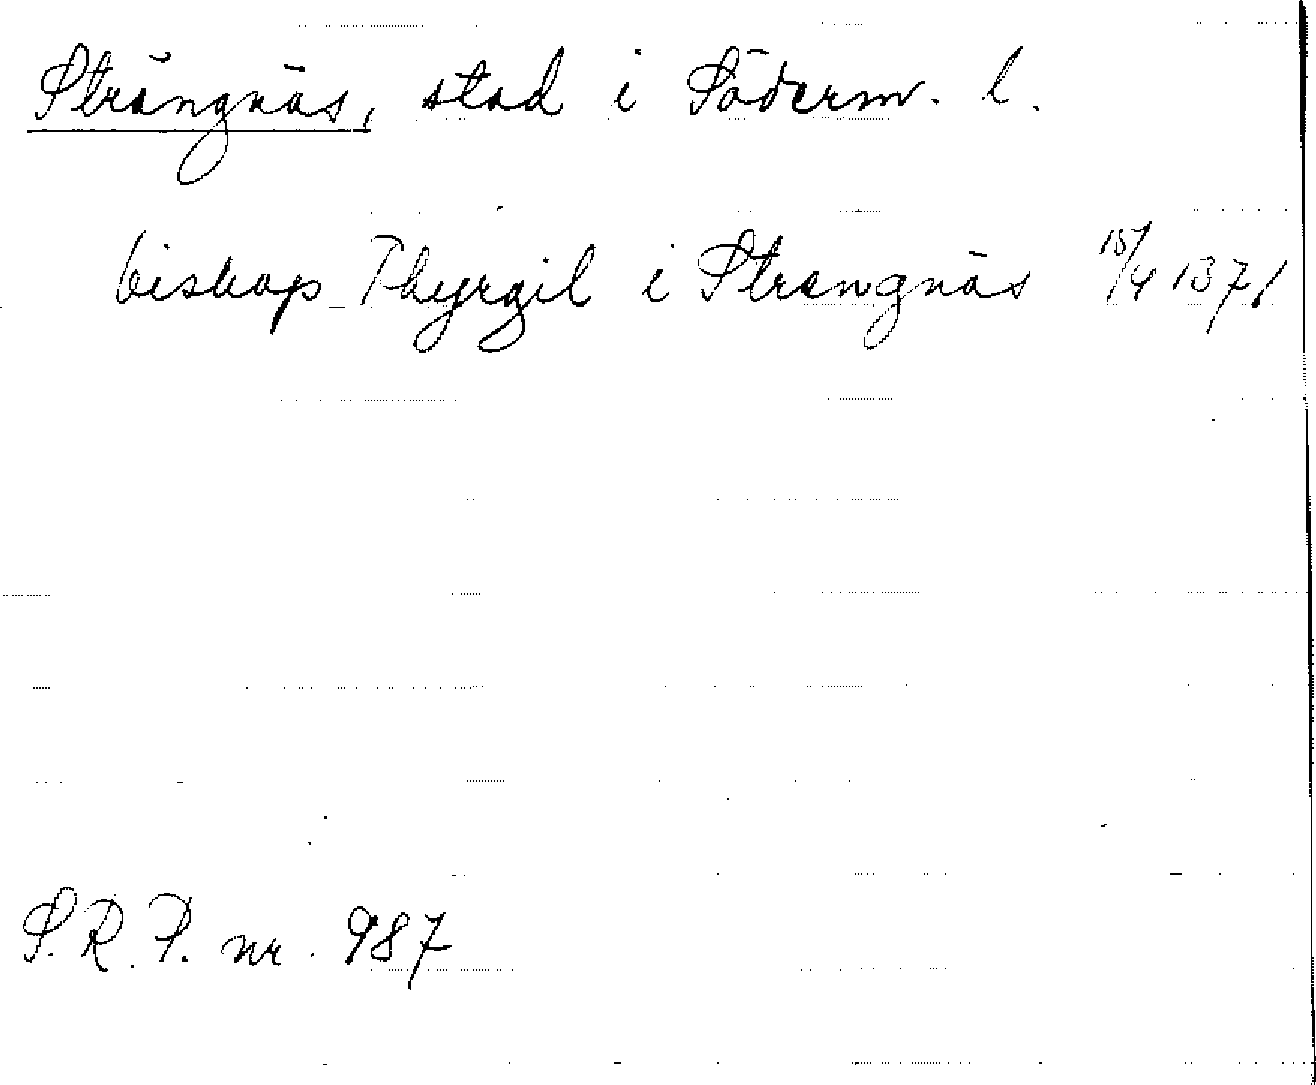 Strängnäs, stad i Söderm. l.
biskop Thyrgil i Strengnäs 15/4 1371
S.R.P. nr. 987